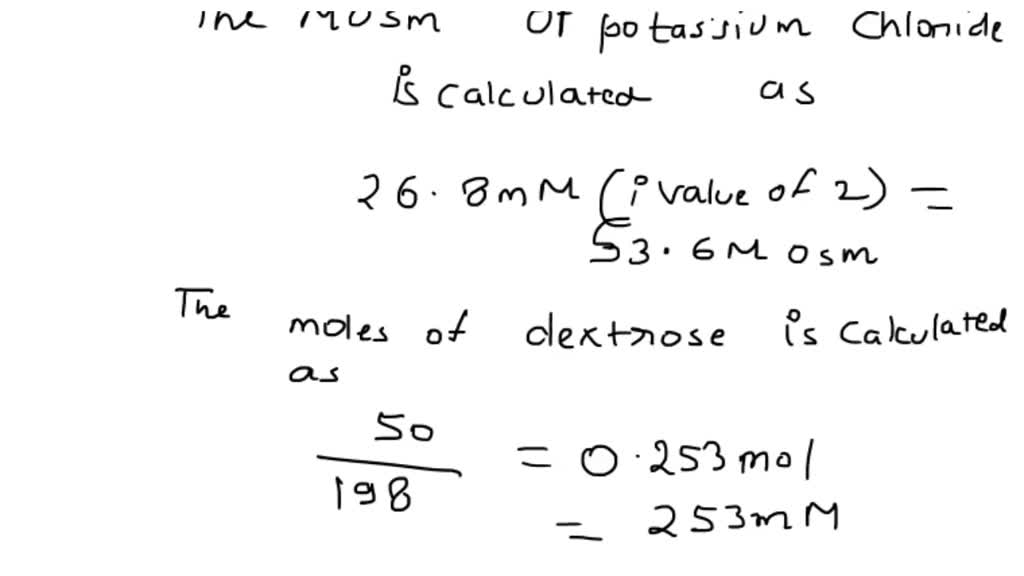 The MOsm of potassium Chloride
is calculated as
26.8mM (i value of 2) =
53.6 M osm
The moles of dextrose is calculated
as
50
198
= 0.253 mol
= 253mM